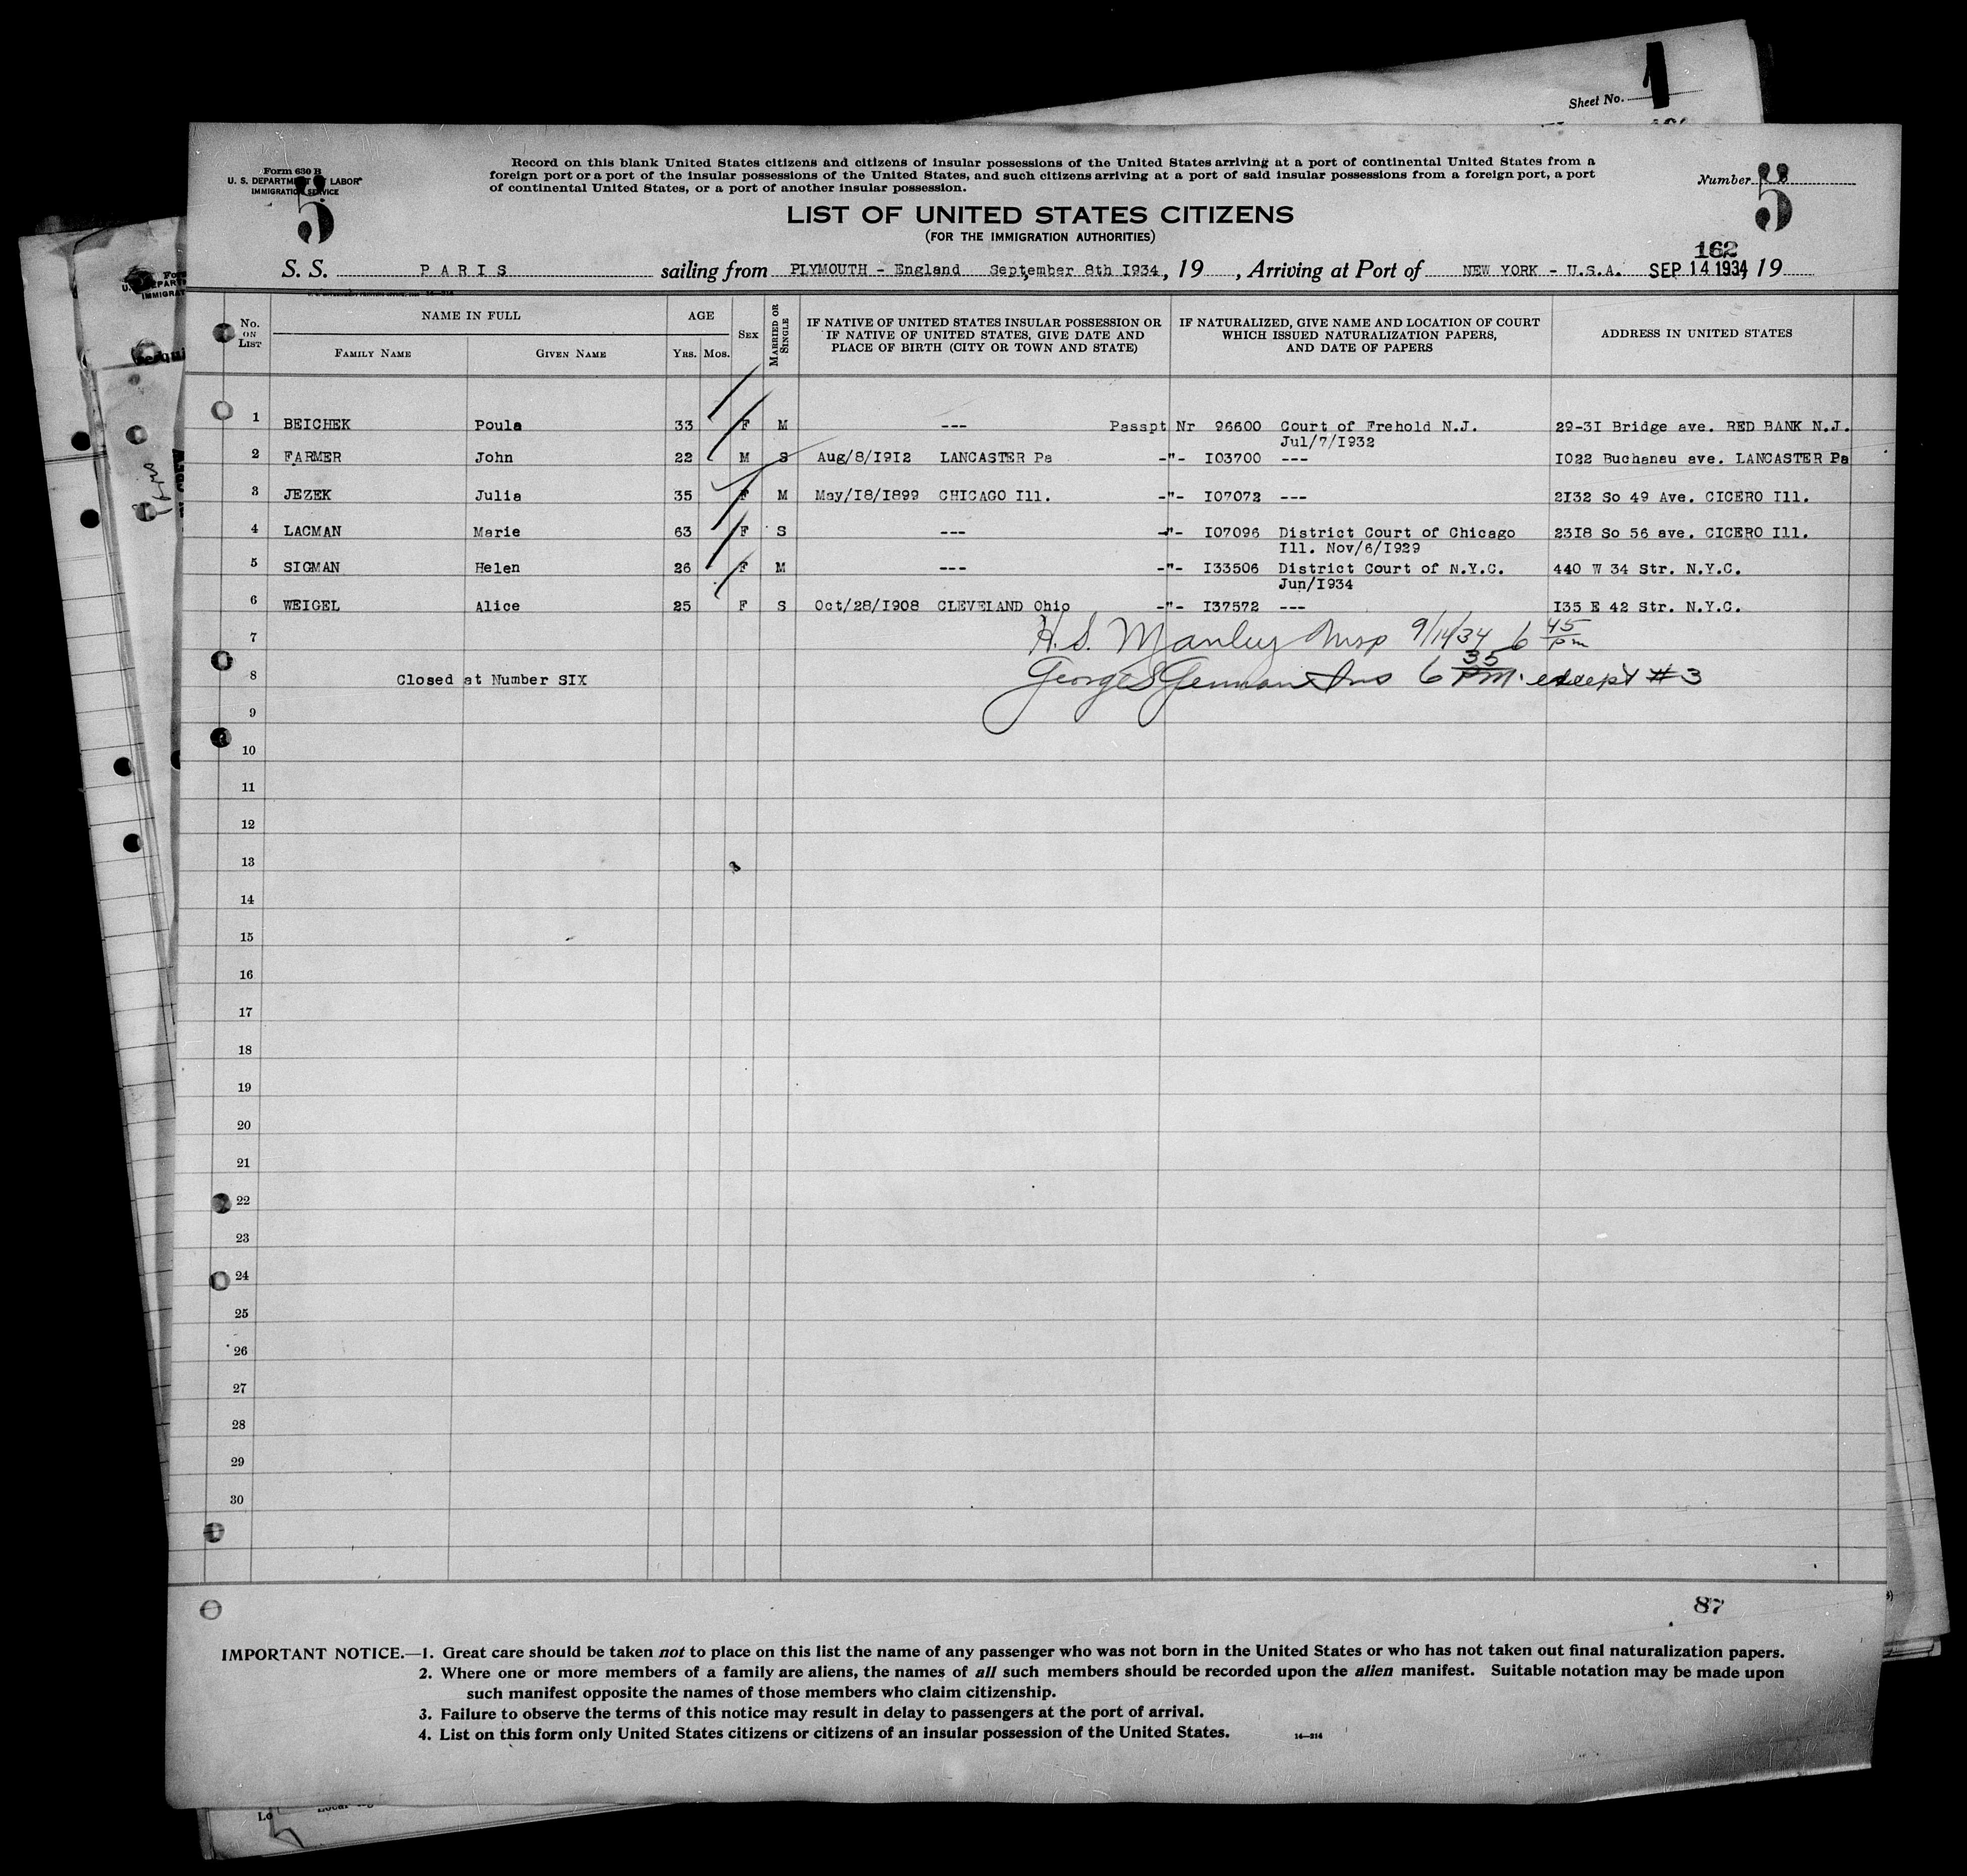 Sheet No. 1
Form 630 B
U. S. DEPARTMENT OF LABOR
IMMIGRATION SERVICE
5
Record on this blank United States citizens and citizens of insular possessions of the United States arriving at a port of continental United States from a
foreign port or a port of the insular possessions of the United States, and such citizens arriving at a port of said insular possessions from a foreign port, a port
of continental United States, or a port of another insular possession.
Number 5
LIST OF UNITED STATES CITIZENS
(FOR THE IMMIGRATION AUTHORITIES)
162
S. S. PARIS sailing from PLYMOUTH - England September 8th I934, 19 , Arriving at Port of NEW YORK - U.S.A. SEP 14 1934, 19
No. ON LIST NAME IN FULL FAMILY NAME GIVEN NAME AGE YRS. MOS. SEX MARRIED OR SINGLE IF NATIVE OF UNITED STATES INSULAR POSSESSION OR IF NATIVE OF UNITED STATES, GIVE DATE AND PLACE OF BIRTH (CITY OR TOWN AND STATE) IF NATURALIZED, GIVE NAME AND LOCATION OF COURT WHICH ISSUED NATURALIZATION PAPERS, AND DATE OF PAPERS ADDRESS IN UNITED STATES
1 BEICHEK Poula 33 F M --- Passpt Nr 96600 Court of Frehold N.J. 29-3I Bridge ave. RED BANK N.J.
Jul/7/I932
2 FARMER John 22 M S Aug/8/I9I2 LANCASTER Pa -"- I03700 --- I022 Buchanau ave. LANCASTER Pa
3 JEZEK Julia 35 F M May/I8/I899 CHICAGO Ill. -"- I07072 --- 2I32 So 49 Ave. CICERO Ill.
4 LACMAN Marie 63 F S --- -"- I07096 District Court of Chicago 23I8 So 56 ave. CICERO Ill.
Ill. Nov/6/I929
5 SIGMAN Helen 26 F M --- -"- I33506 District Court of N.Y.C. 440 W 34 Str. N.Y.C.
Jun/I934
6 WEIGEL Alice 25 F S Oct/28/I908 CLEVELAND Ohio -"- I37572 --- I35 E 42 Str. N.Y.C.
7 H. S. Manley Insp 9/14/34 6 45 pm
8 Closed at Number SIX George 6 35 PM. except #3
9
10
11
12
13
14
15
16
17
18
19
20
21
22
23
24
25
26
27
28
29
30
87
IMPORTANT NOTICE.—1. Great care should be taken not to place on this list the name of any passenger who was not born in the United States or who has not taken out final naturalization papers.
2. Where one or more members of a family are aliens, the names of all such members should be recorded upon the alien manifest. Suitable notation may be made upon
such manifest opposite the names of those members who claim citizenship.
3. Failure to observe the terms of this notice may result in delay to passengers at the port of arrival.
4. List on this form only United States citizens or citizens of an insular possession of the United States. 14—914